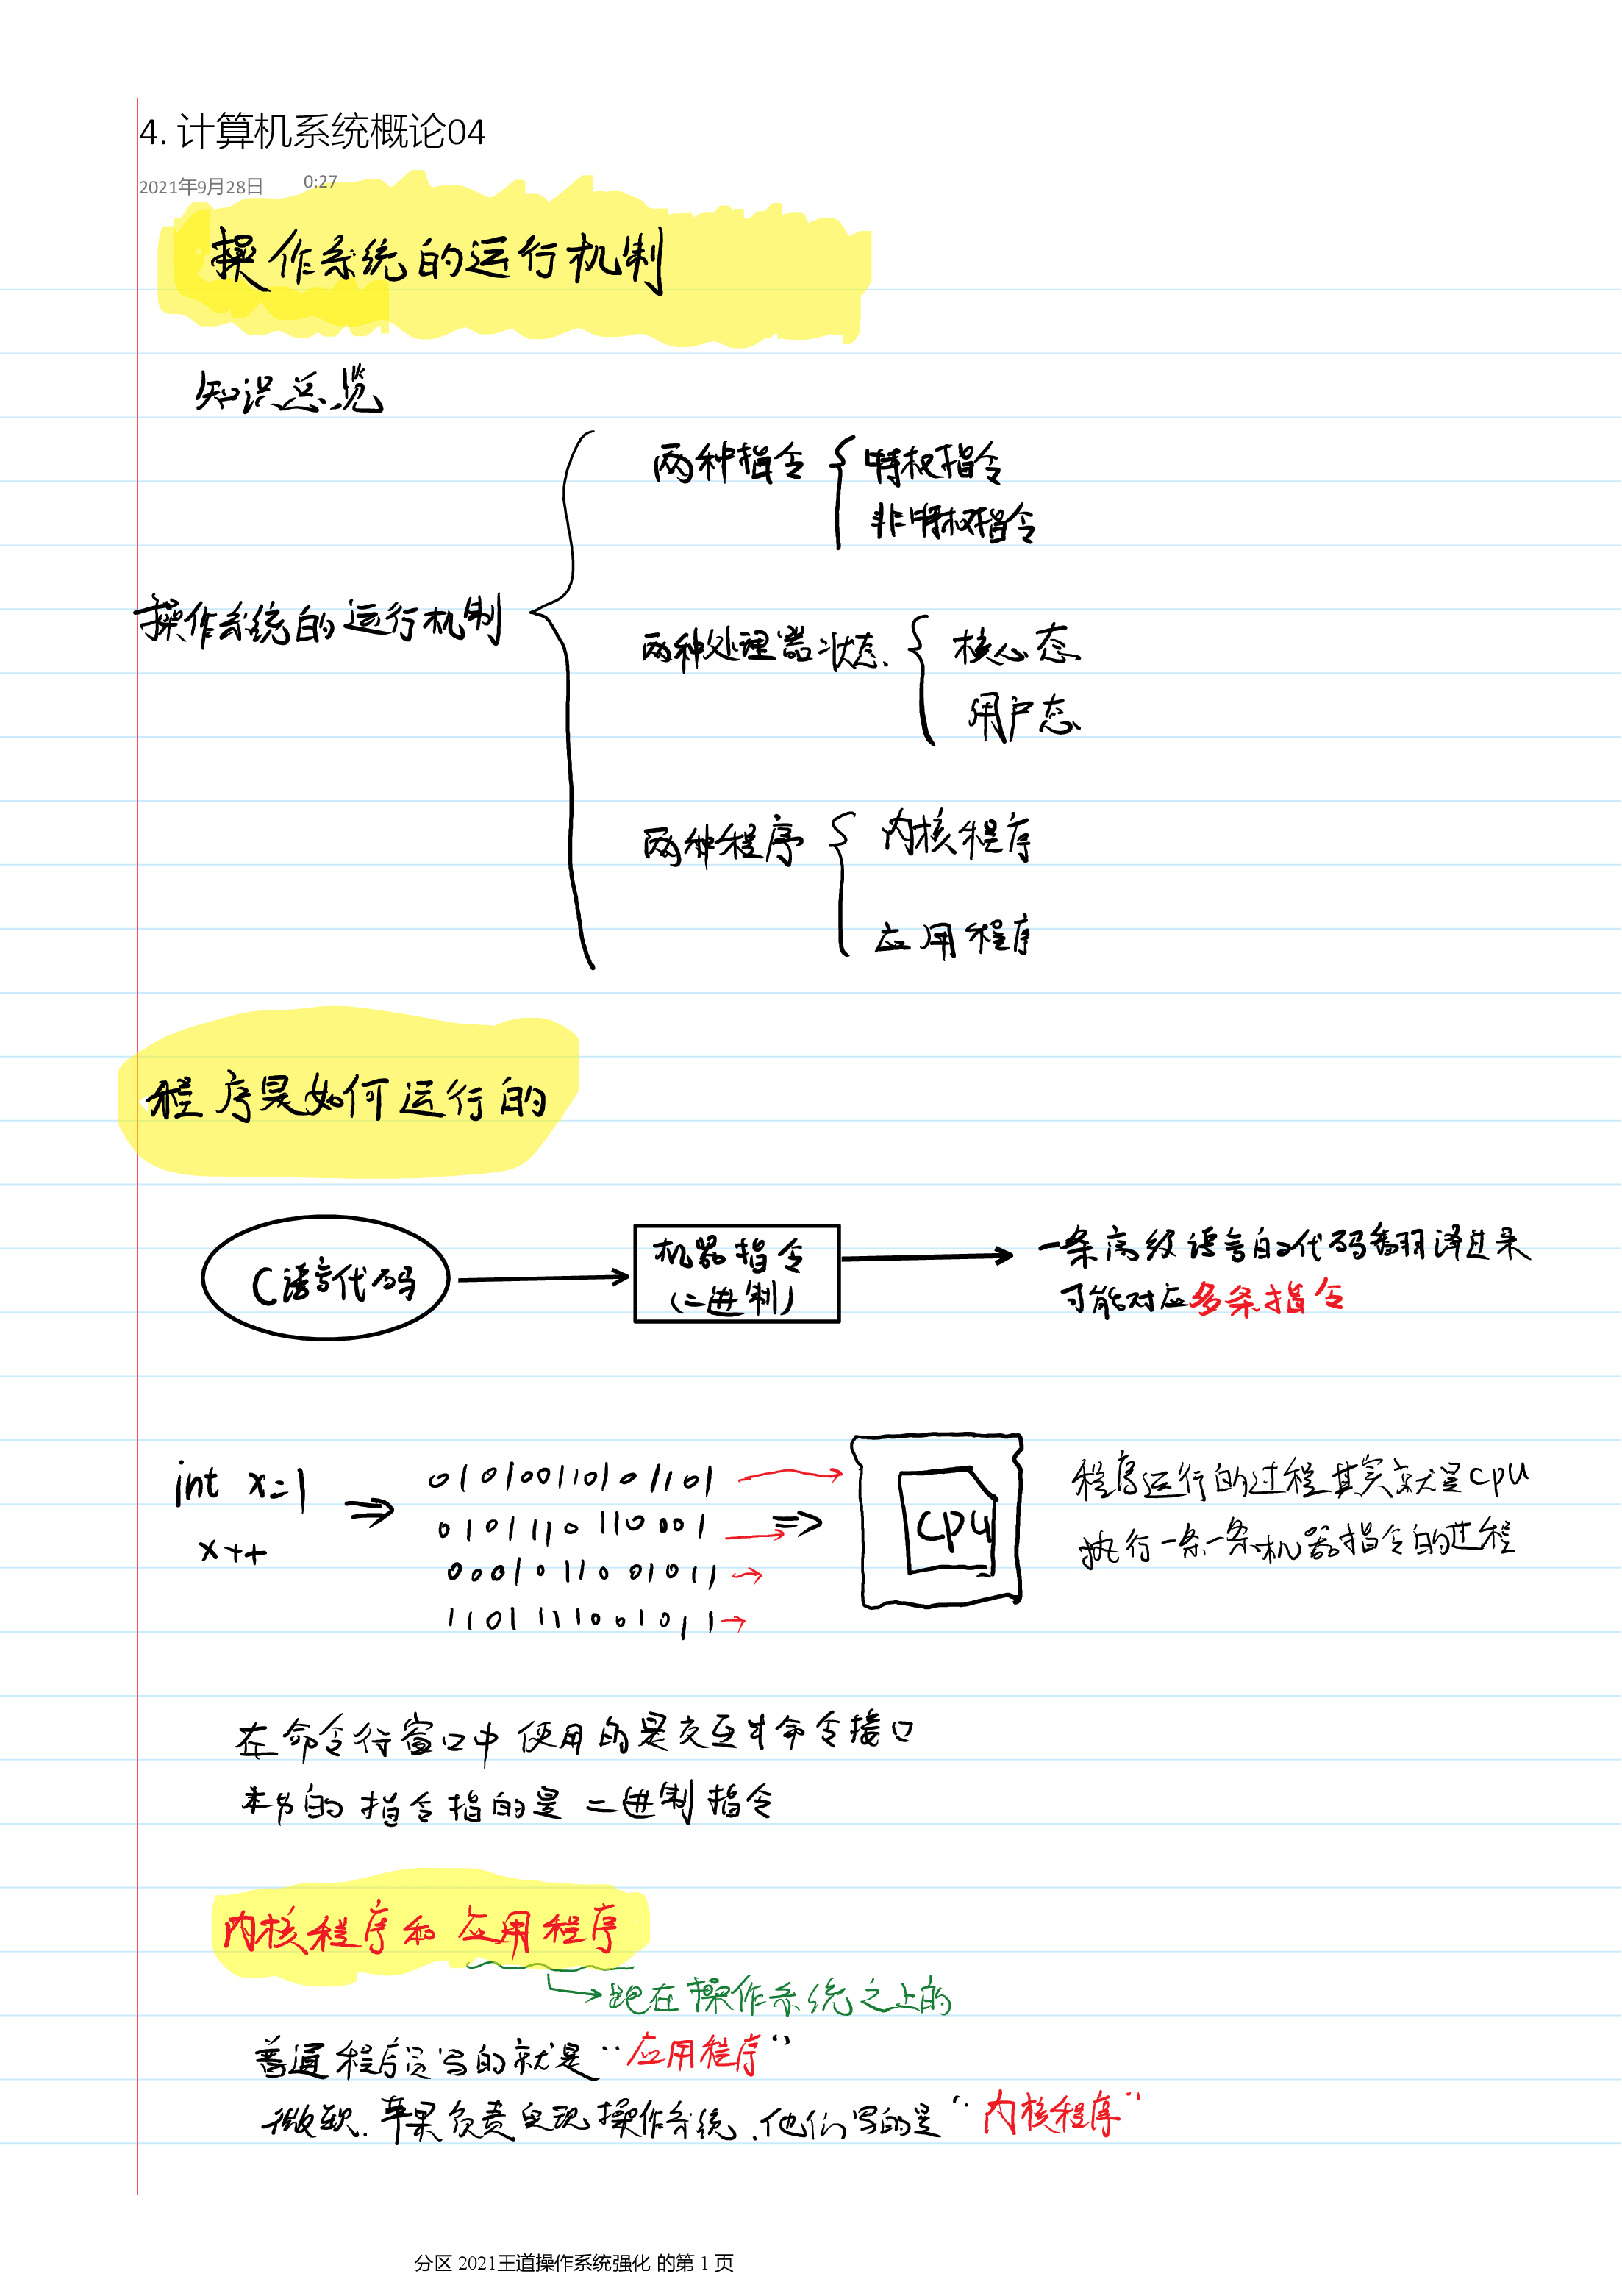 4. 计算机系统概论04
2021年9月28日 0:27
操作系统的运行机制
知识总览
两种指令 特权指令
非特权指令
操作系统的运行机制
两种处理器状态 核心态
用户态
两种程序 内核程序
应用程序
程序是如何运行的
C语言代码
机器指令
(二进制)
一条高级语言的代码翻译过来
可能对应多条指令
int x=1
x++
程序运行的过程其实就是cpu
执行一条一条机器指令的过程
cpu
在命令行窗口中使用的是交互式命令接口
本节的指令指的是二进制指令
内核程序和应用程序
跑在操作系统之上的
普通程序员写的就是“应用程序”
微软、苹果负责实现操作系统,他们写的是“内核程序”
分区 2021王道操作系统强化 的第 1 页